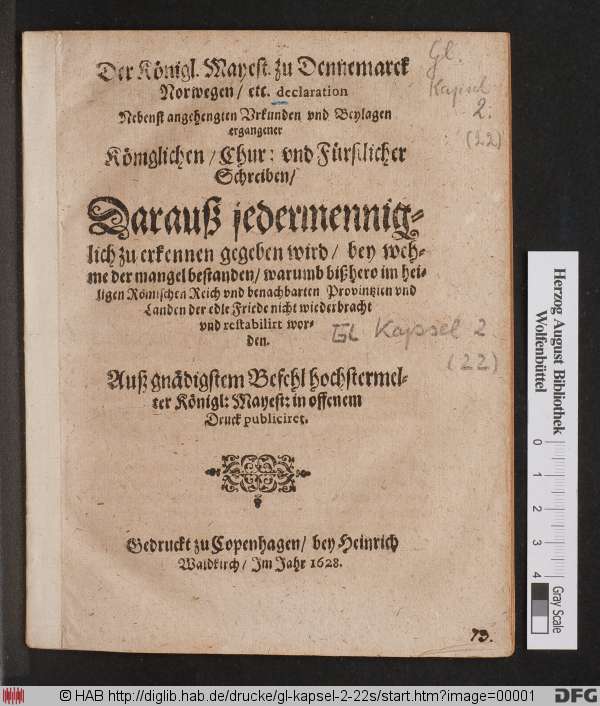 Der Königl. Mayest. zu Dennemarck
Norwegen / etc. declaration
Nebenst angehengten Vrkunden vnd Beylagen
ergangener
Königlichen / Chur: vnd Fürstlicher
Schreiben /
Darauß jedermennig-
lich zu erkennen gegeben wird / bey weh-
me der mangel bestanden / warumb bißhero im hei-
ligen Römischen Reich vnd benachbarten Provintzien vnd
Landen der edle Friede nicht wiederbracht
vnd restabilirt wor-
den.
Auß gnädigstem Befehl hochstermel-
ter Königl: Mayest: in offenem
Druck publiciret.
Gedruckt zu Copenhagen / bey Heinrich
Waldkirch / Im Jahr 1628.
Gl.
Kapsel
2.
(22)
Gl Kapsel 2
(22)
73.
Herzog August Bibliothek
Wolfenbüttel
0
1
2
3
4
Gray Scale
© HAB http://diglib.hab.de/drucke/gl-kapsel-2-22s/start.htm?image=00001
DFG